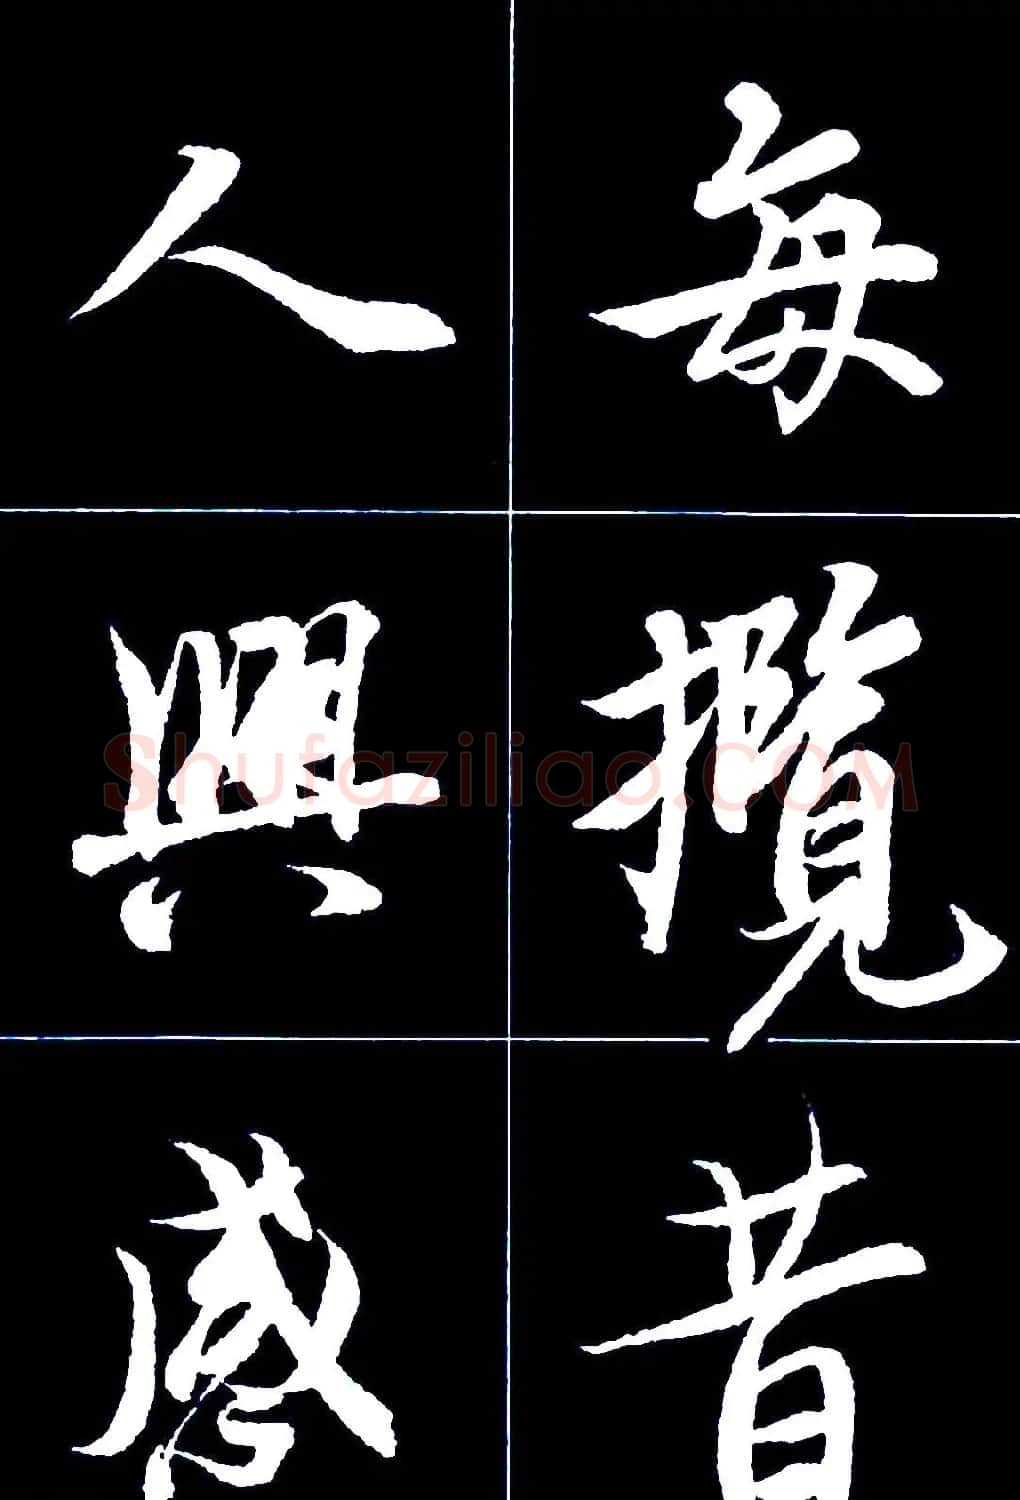 每攬昔
人興感
Shufaziliao.COM